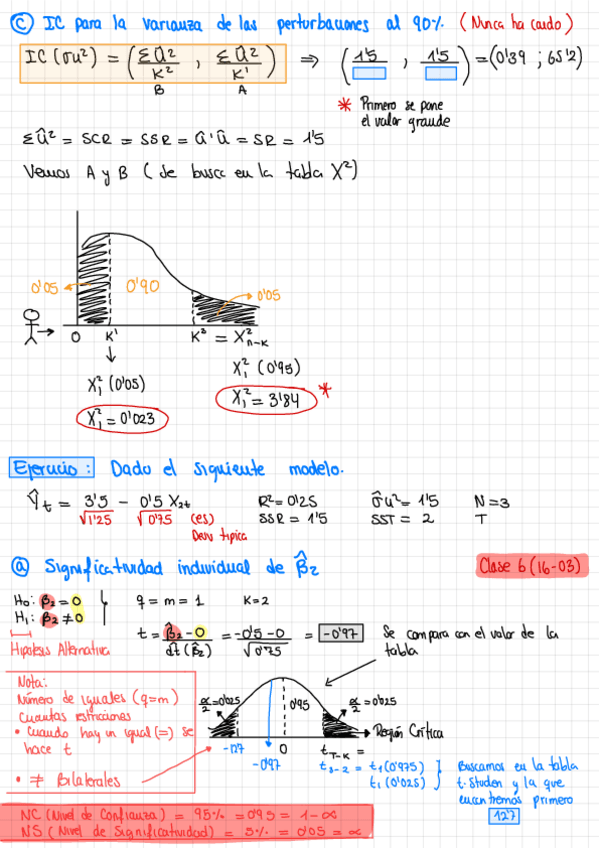 C) IC para la varianza de las perturbaciones al 90%. (Nunca ha caído)
IC (σu²) = (Σû²/K² , Σû²/K¹) ⇒ (1'5/ , 1'5/ ) = (0'39 ; 65'2)
B A
* Primero se pone
el valor grande
Σû² = SCR = SSR = û'û = SR = 1'5
Vemos A y B ( se busca en la tabla X²)
0'05 0'90 0'05
0 K¹ K² = X²n-k
X²1 (0'05) X²1 (0'95)
X²1 = 0'023 X²1 = 3'84 *
Ejercicio: Dado el siguiente modelo.
Ŷt = 3'5 - 0'5 X2t R² = 0'25 σ̂u² = 1'5 N = 3
√1'25 √0'75 (es) SSR = 1'5 SST = 2 T
Desv típica
a) Significatividad individual de β̂2 Clase 6 (16-03)
H0: β2 = 0 q = m = 1 K = 2
H1: β2 ≠ 0
t = β̂2 - 0 / dt (β̂2) = -0'5 - 0 / √0'75 = -0'97 Se compara con el valor de la
tabla
Hipótesis Alternativa
Nota:
Número de iguales (q=m)
Cuantas restricciones
• Cuando hay un igual (=) se
hace t
• ≠ Bilaterales
α/2 = 0'025 0'95 α/2 = 0'025
Región Crítica
-12'7 -0'97 0 tT-K =
t3-2 = t1 (0'975)
t1 (0'025)
Buscamos en la tabla
t-Studen y la que
encontremos primero
12'7
NC (Nivel de Confianza) = 95% = 0'95 = 1 - α
NS (Nivel de Significatividad) = 5% = 0'05 = α